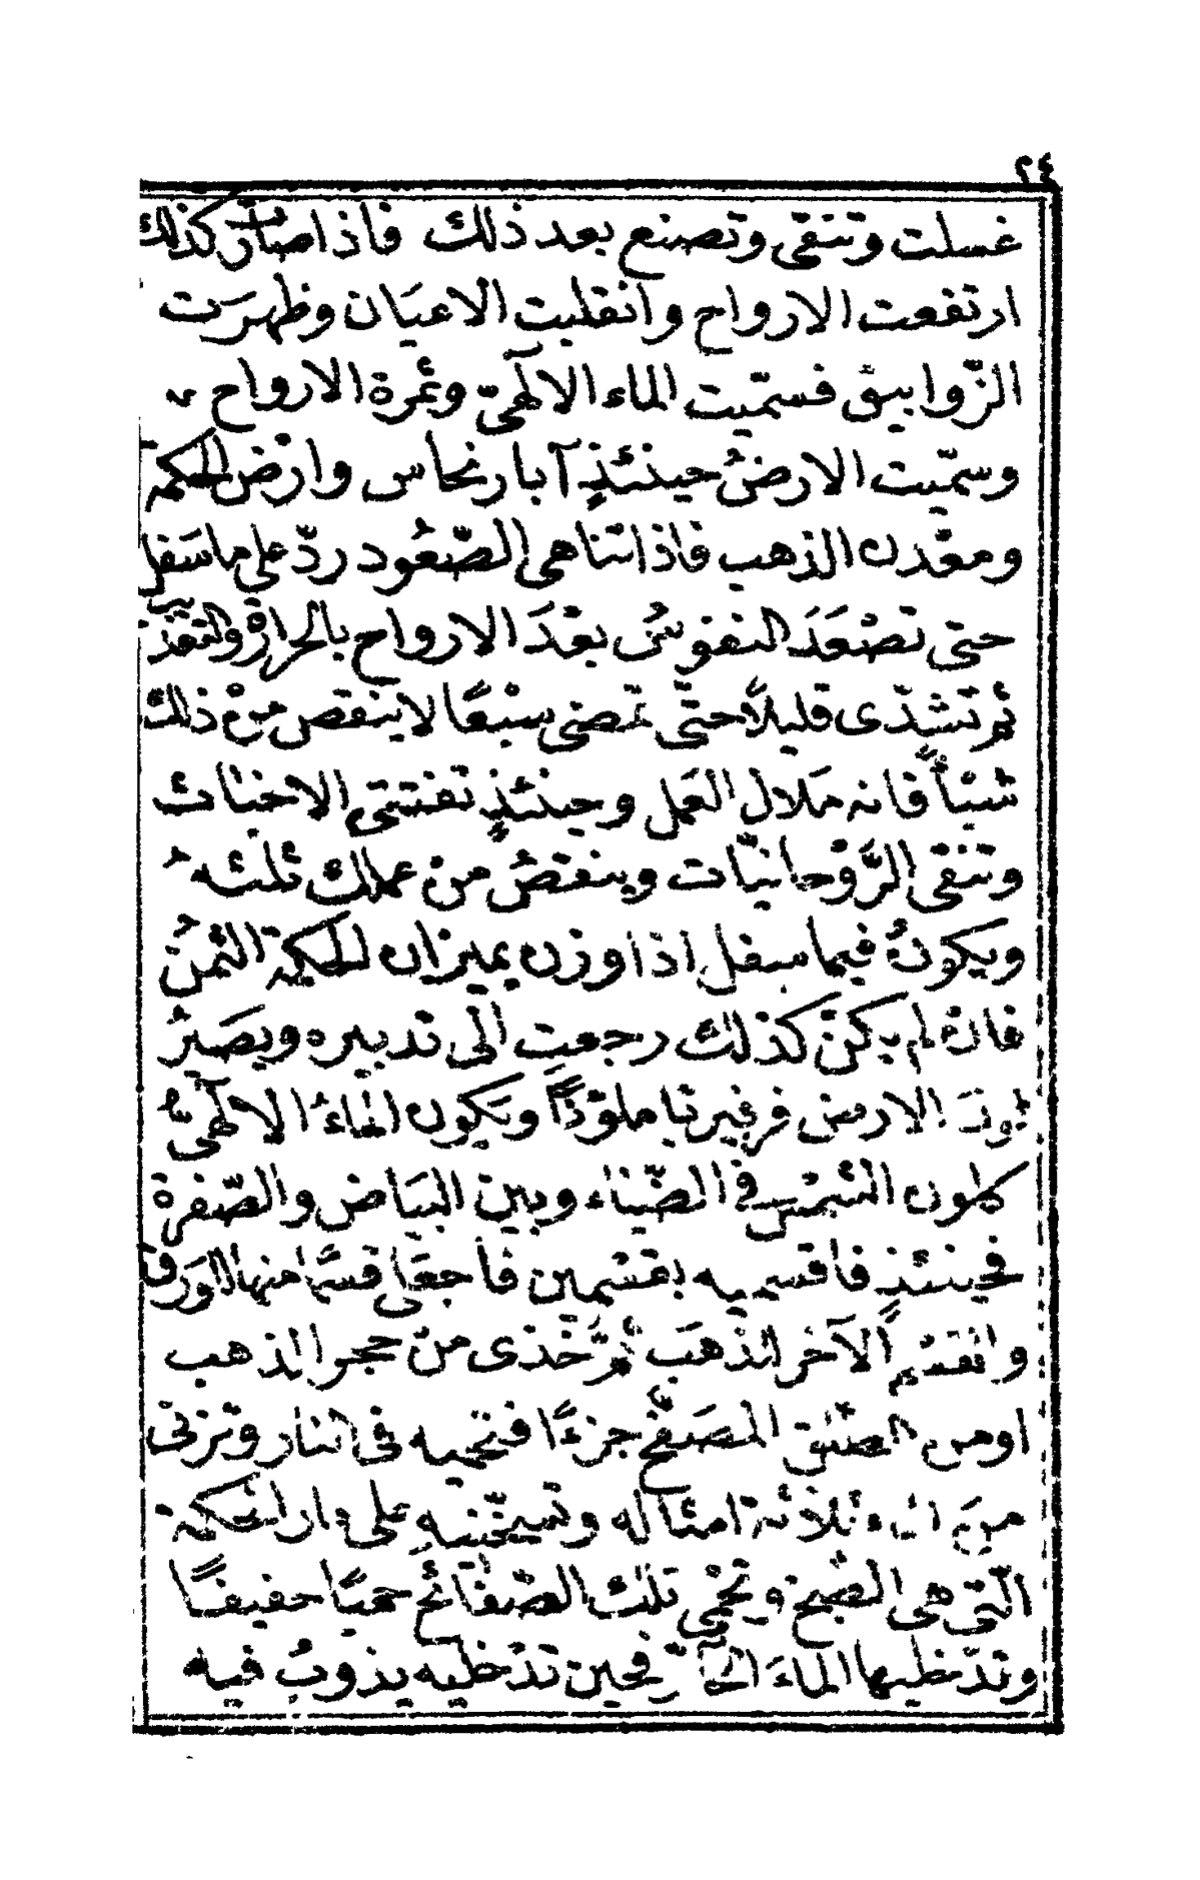 ٢٤
غسلت وتنقى وتصنع بعد ذلك فاذا صار كذلك
ارتفعت الارواح وانقلبت الاعيَان وظهرَت
الزّوابيق فسمّيت الماء الالٓهىّ وثمرة الارواح
وسمّيت الارضُ حينئذٍ آبار نحاس وارض الحكمة
ومعْدن الذهب فاذا تناهى الصّعُود ردّ على ما سَفل
حتى تصْعَدَ النفوسُ بعْدَ الارواح بالحرارة والتقدير
ثم تشدّى قليلًا حتّى تمضى سبْعًا لا ينقص منْ ذلك
شيْأً فانه مَلال العَمل وحينئذٍ تفنتى الاخباث
وتنقى الرَّوْحانيّات وينقصُ منْ عملك ثلثهُ
ويكونُ فيما سفل اذا وزن بميزان الحكمة الثمنُ
فانْ لم يكنْ كذلك رجعتِ الى تدبيره ويصَيرُ
لونَ الارض فرفيريا ملوّنًا ويكون الماءُ الالٓهىُّ
كلون الشمْس فى الضّياء وبين البيَاض والصّفرة
فحينئذٍ فاقسميه بقسْمين فاجعَلى قسمًا منها الوَرق
والقسْم الآخر الذهَب ثمَّ خُذى منْ حجر الذهب
او من المصَفّح جزءًا فتحميه فى النار وتزنى
منَ ثلاثة امثاله وتسخّنيهِ على نار الحكمة
الّتى هى الطّبخ وتحْمى تلك الصّفائح حميًا خفيفًا
وتدْخليها الماءَ فحين تدْخليه يذوبُ فيه